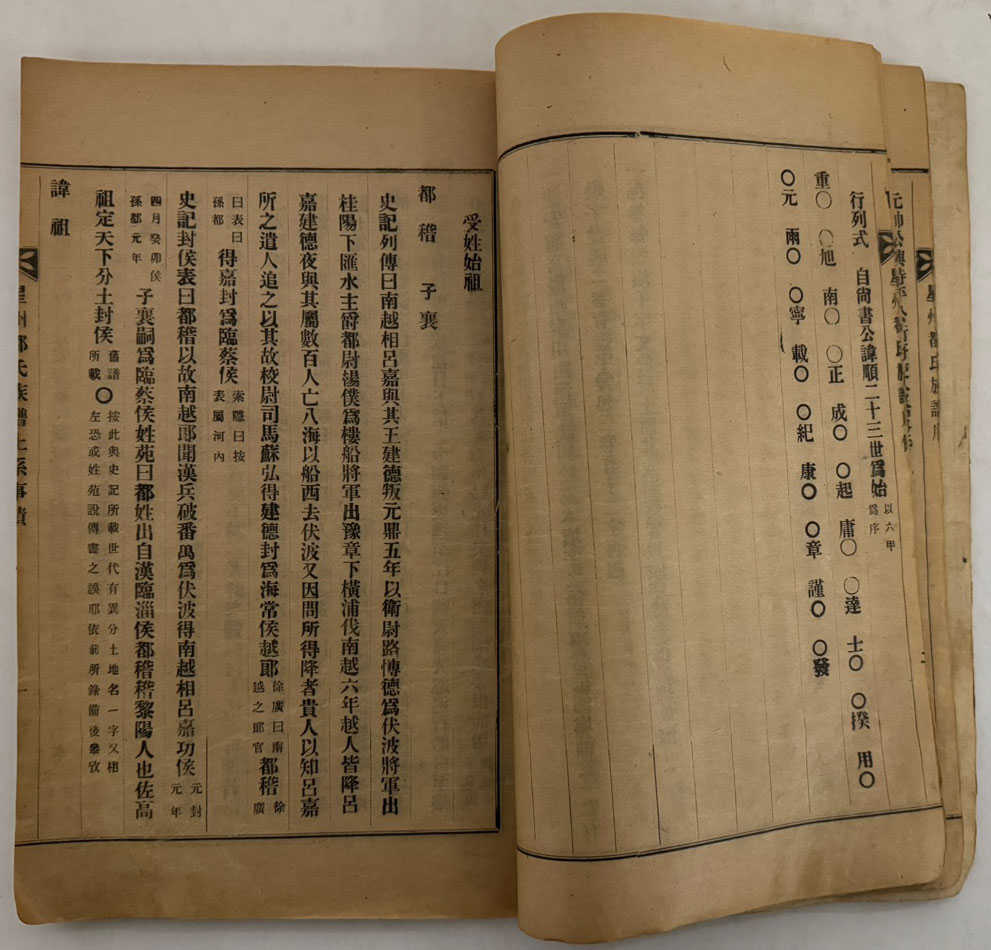 行列式　自尙書公諱順二十三世爲始 以六甲爲序
重〇　〇旭　南〇　〇正　成〇　〇起　庸〇　〇達　士〇　〇揆　用〇
〇元　雨〇　〇寧　載〇　〇紀　康〇　〇章　謹〇　〇發
受姓始祖
都稽　子襄
史記列傳曰南越相呂嘉與其王建德叛元鼎五年以衛尉路愽德爲伏波將軍出
桂陽下匯水主爵都尉楊僕爲樓船將軍出豫章下橫浦伐南越六年越人皆降呂
嘉建德夜與其屬數百人亡入海以船西去伏波又因問所得降者貴人以知呂嘉
所之遣人追之以其故校尉司馬蘇弘得建德封爲海常侯越郞 徐廣曰南越之郞官 都稽 徐廣
曰表曰孫都 得嘉封爲臨蔡侯 索隱曰按表屬河內
史記封侯表曰都稽以故南越郞聞漢兵破番禺爲伏波得南越相呂嘉功侯 元封元年
四月癸卯侯孫都元年 子襄嗣爲臨蔡侯姓苑曰都姓出自漢臨淄侯都稽稽黎陽人也佐高
祖定天下分土封侯 舊譜所載 〇 按此與史記所載世代有異分土地名一字又相左恐或姓苑說傳書之誤耶依舊所錄備後參攷
諱祖
星州都氏族譜上系事蹟
一
星州都氏族譜序